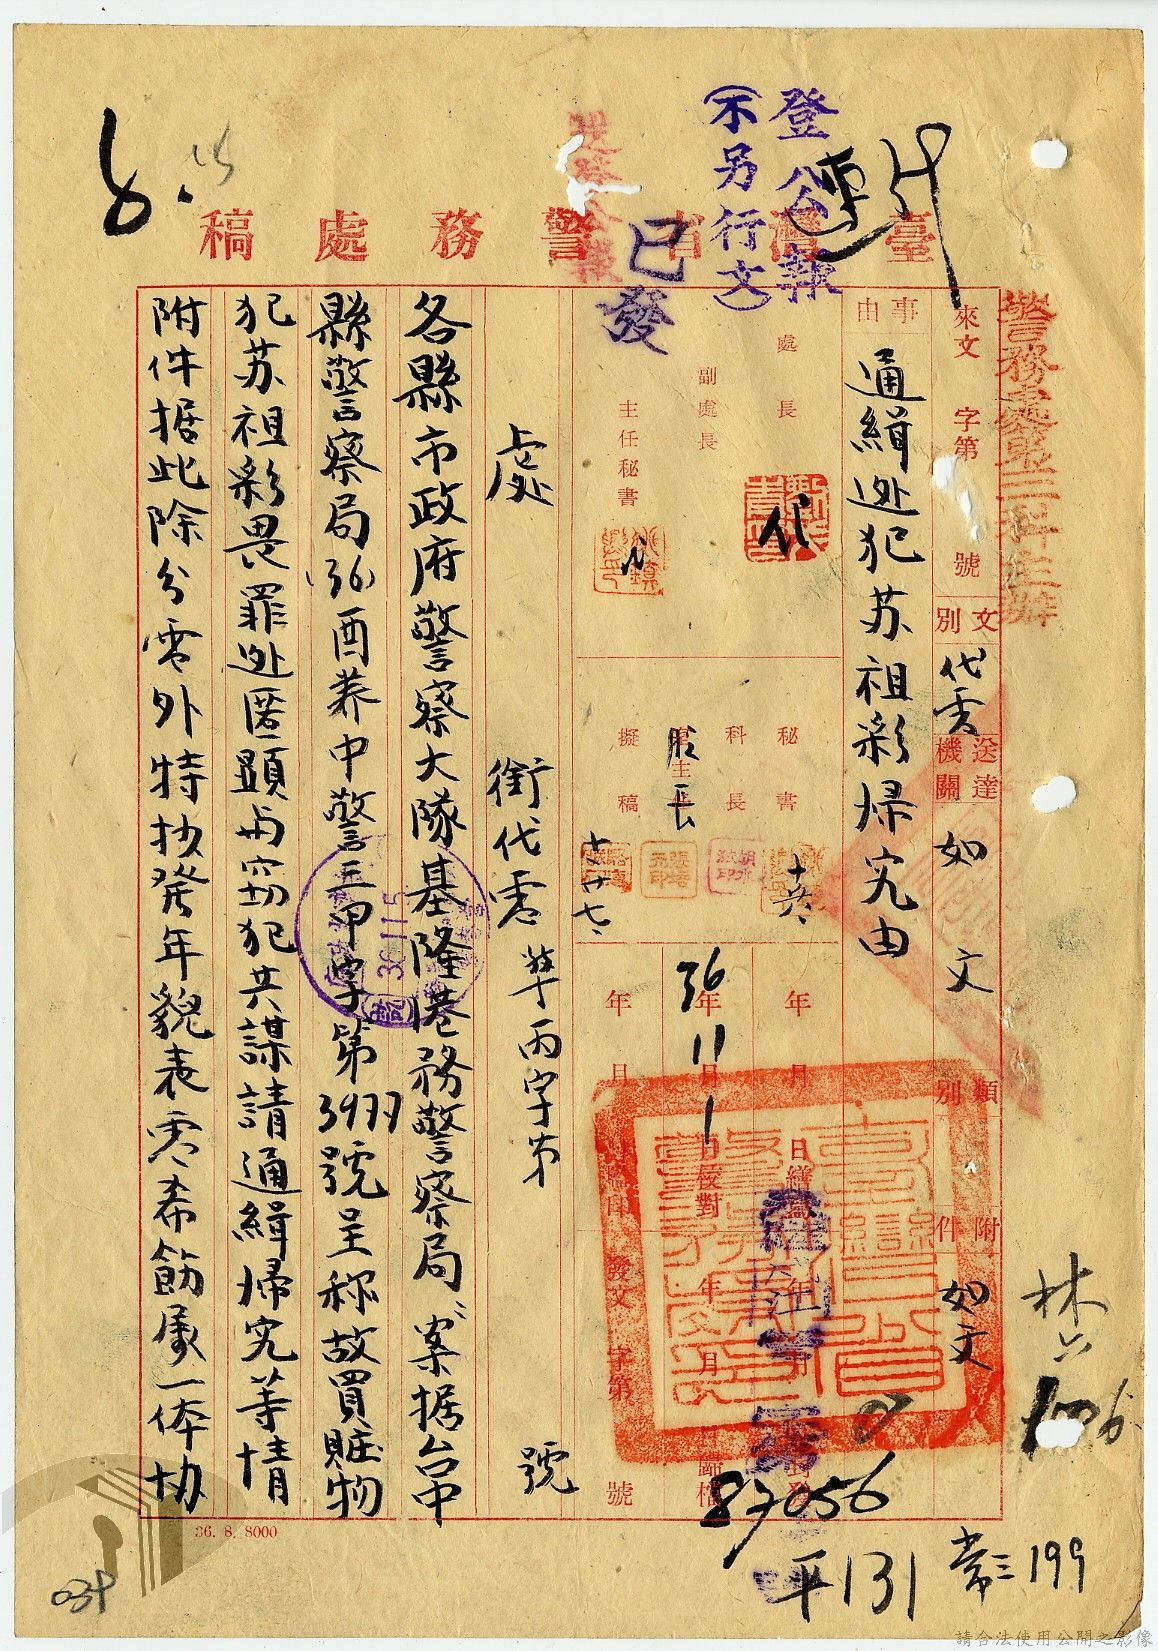 登公報
(不另行文)
已發
臺灣省警務處稿
警務處第三科主辦
來文 字第 號
文別 代電
送達機關 如文
類別
附件 如文
事由
通緝逃犯苏祖彩归究由
處長
副處長
主任秘書
代
秘書
科長
股長
擬稿
36年11月1日
年 月 日
繕
校對
監印
年 月
發文 字第 號
歸檔
87056
處
銜代電 丙字第 號
各縣市政府警察大隊基隆港務警察局案据台中
縣警察局(36)酉养中警三甲字第3977號呈称故買賍物
犯苏祖彩畏罪逃匿顕与窃犯共謀請通緝归究等情
附件据此除分電外特抄発年貌表電希飭属一体协
36.11.5
平131
常三199
林
36. 8. 8000
034
請合法使用公開之影像